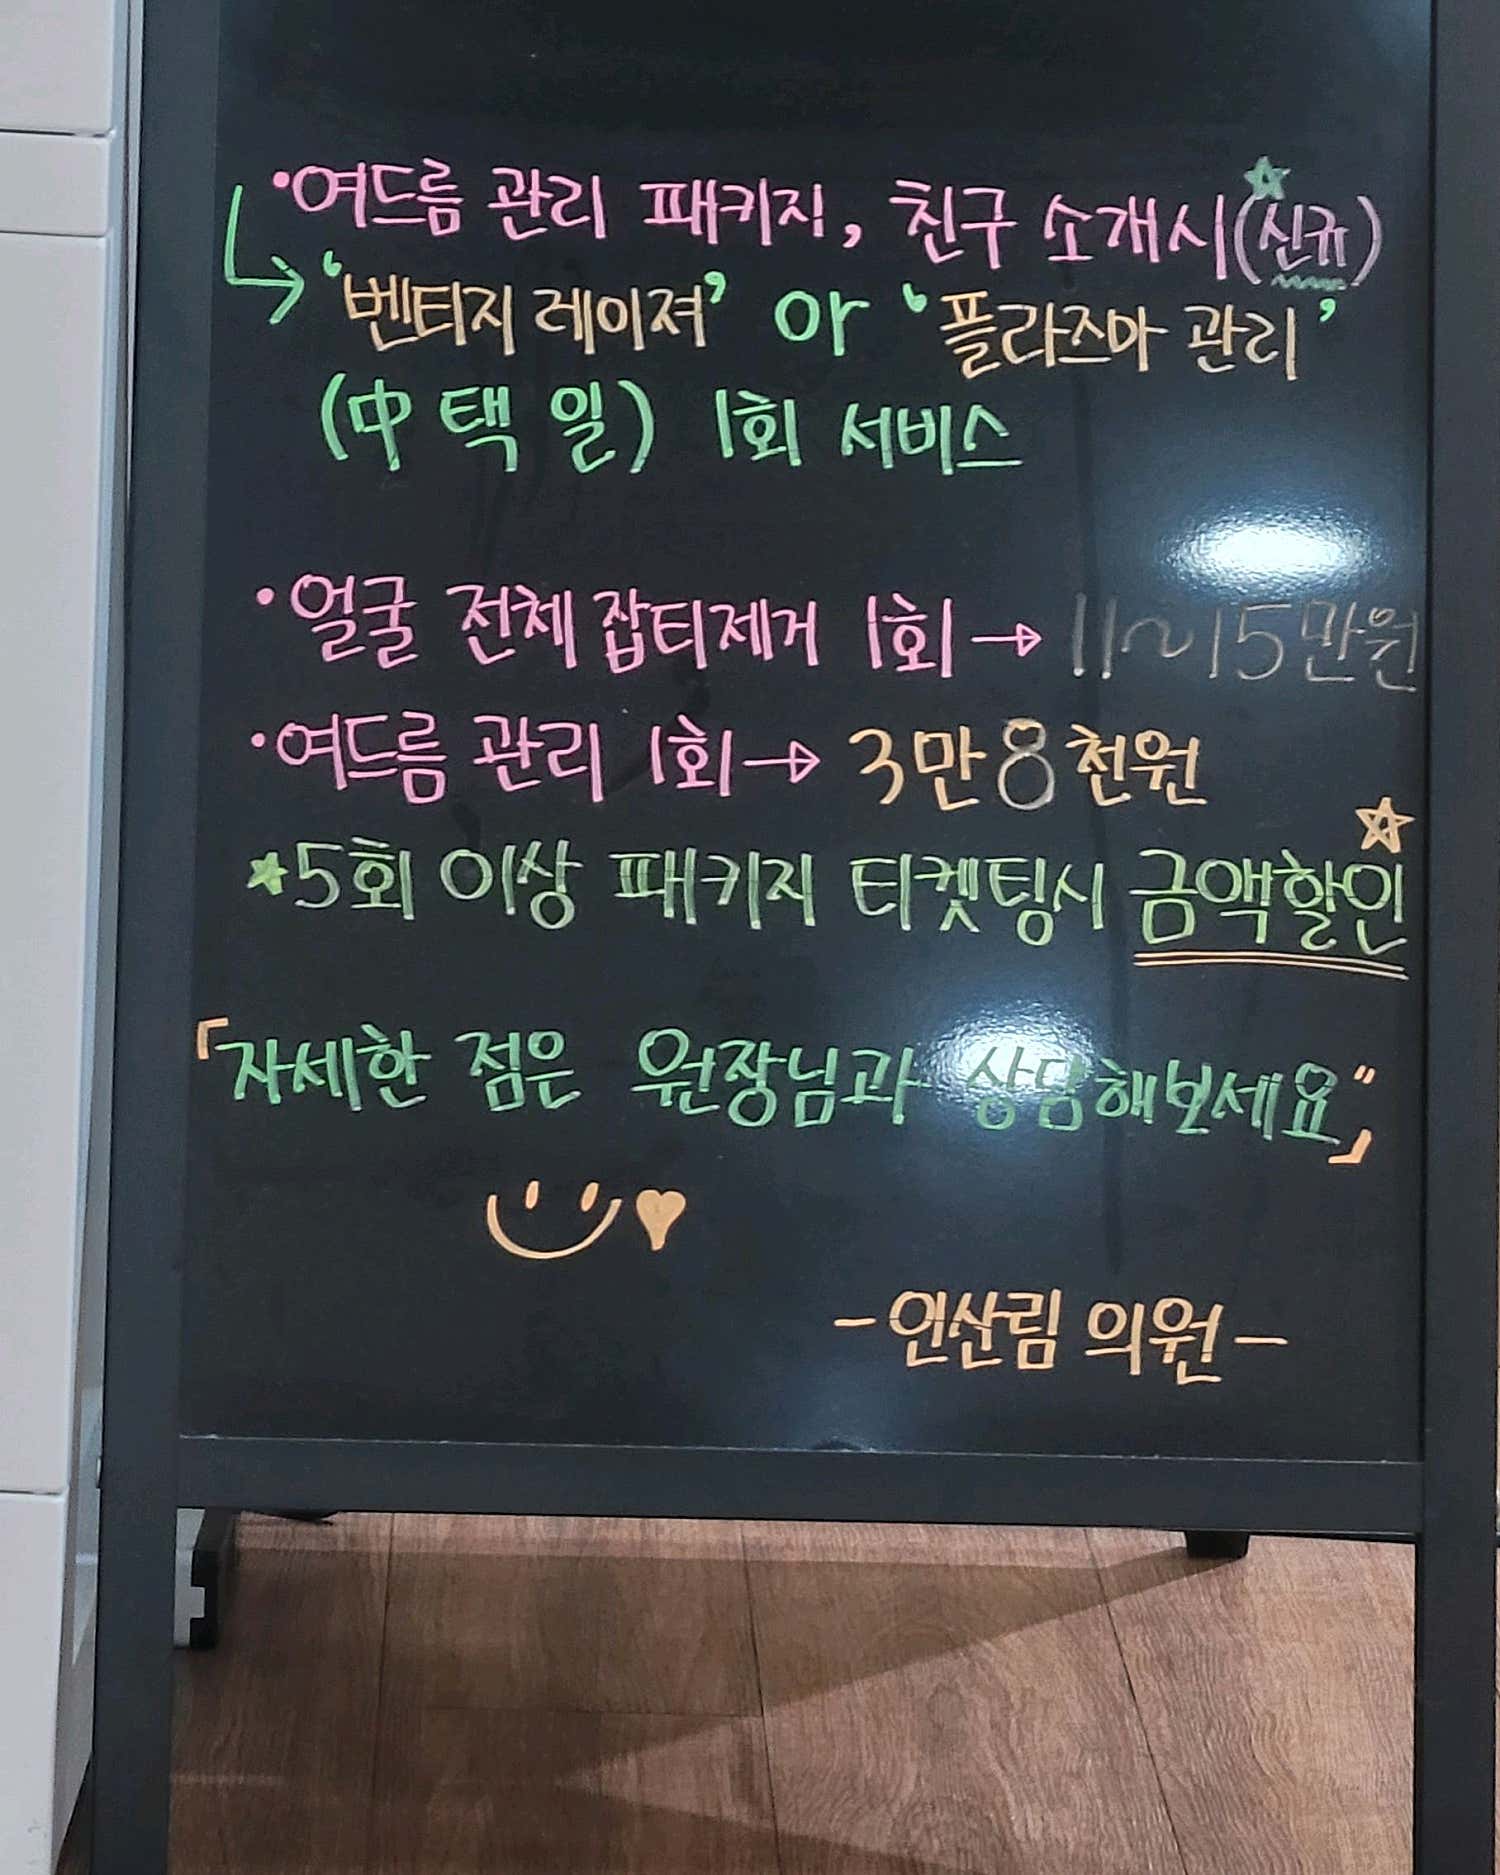 •여드름 관리 패키지, 친구 소개시(신규)
→'벤티지 레이져' or '플라즈마 관리'
(中 택 일) 1회 서비스
•얼굴 전체 잡티제거 1회→11~15만원
•여드름 관리 1회→3만8천원
★5회 이상 패키지 티켓팅시 금액할인
「자세한 점은 원장님과 상담해보세요"」
-인산림 의원-